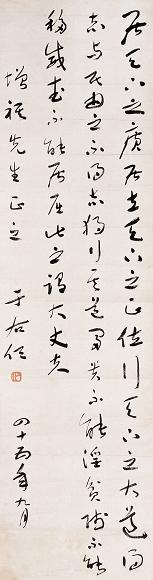 居天下之廣居立天下之正位行天下之大道得
志與民由之不得志獨行其道富貴不能淫貧賤不能
移威武不能屈此之謂大丈夫
增祺先生正之
于右任
四十五年九月